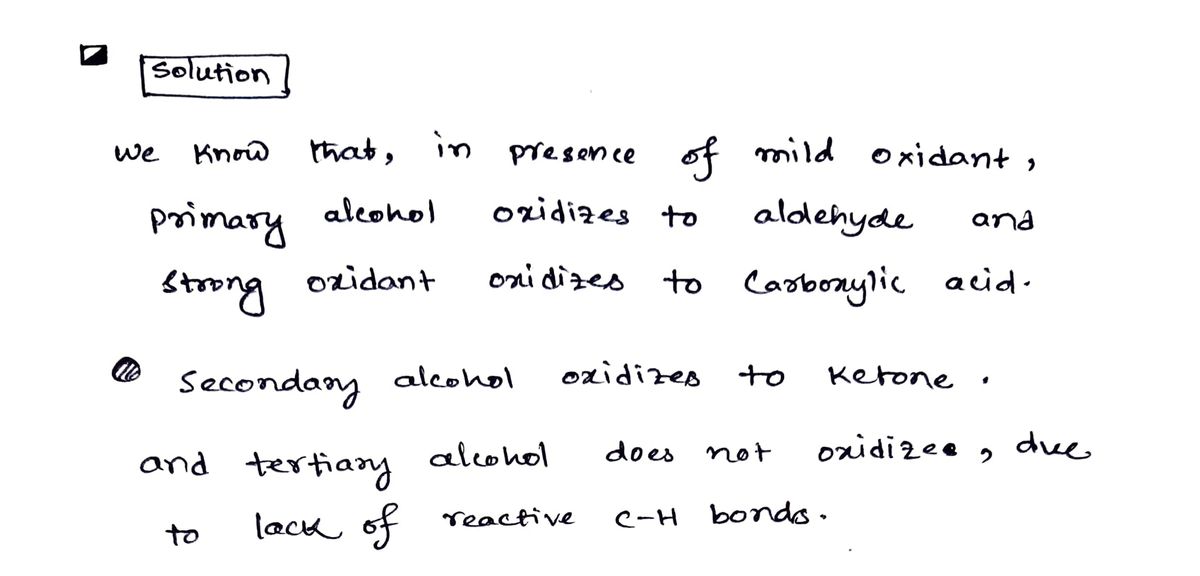 Solution
We know that, in presence of mild oxidant,
primary alcohol oxidizes to aldehyde and
strong oxidant oxidizes to Carboxylic acid.
Secondary alcohol oxidizes to Ketone.
and tertiary alcohol does not oxidizes, due
to lack of reactive C-H bonds.